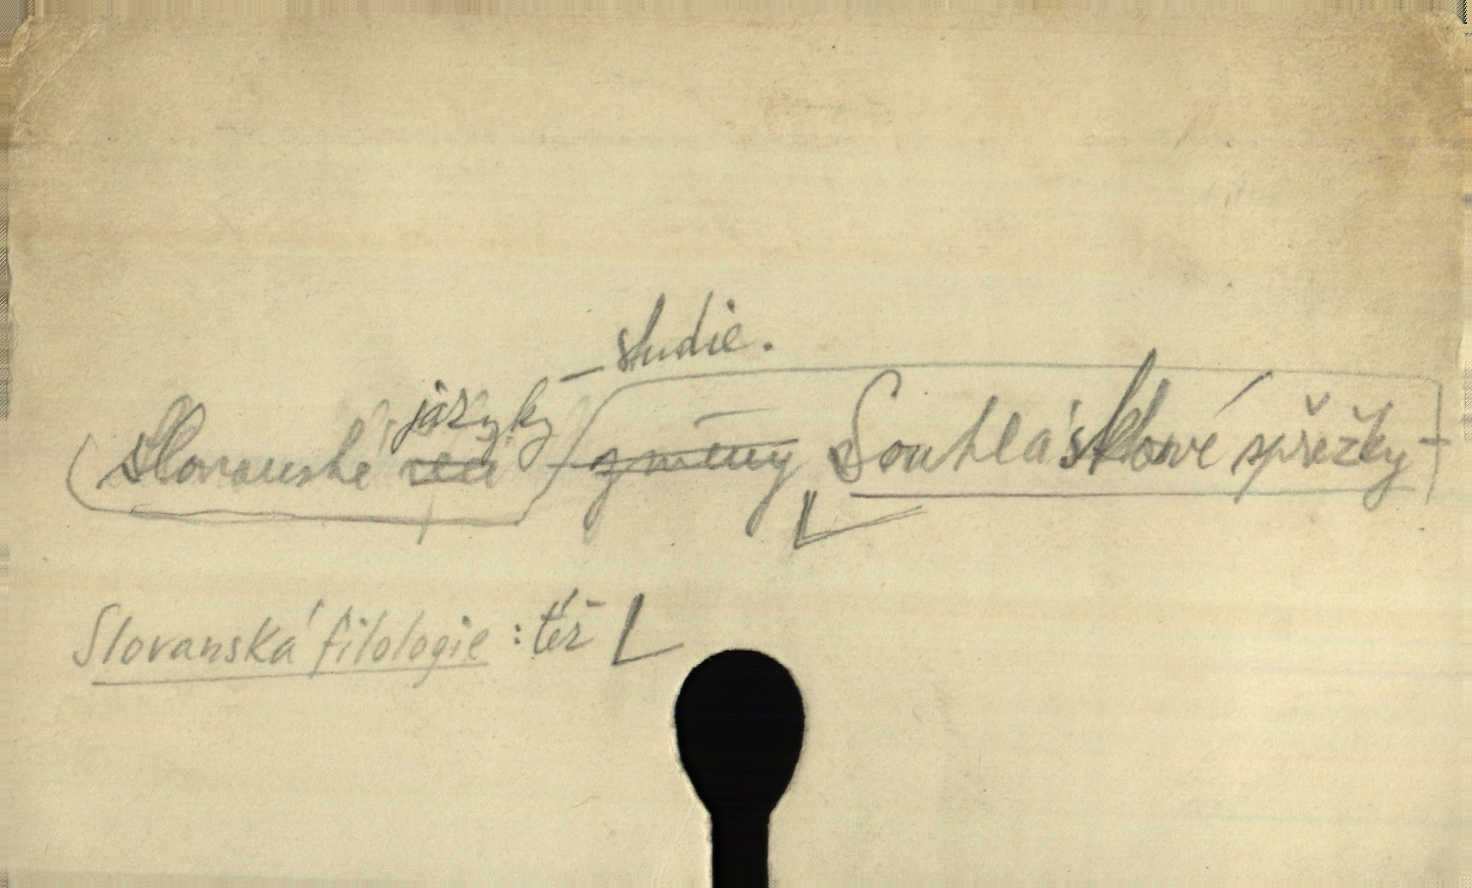 – studie.
jazyky
Slovanské řeči změny Souhláskové spřežky –
Slovanská filologie : též